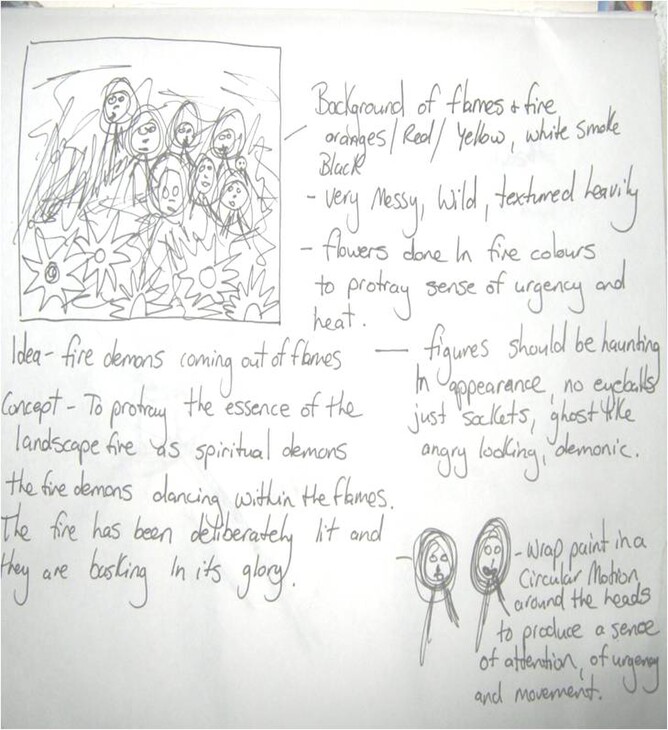 Background of flames + fire
oranges/Red/Yellow, white smoke
Black
- Very Messy, Wild, textured heavily
- flowers done In fire colours
to protray sense of urgency and
heat.
Idea - fire demons coming out of flames
Concept - To protray the essence of the
landscape fire as spiritual demons
the fire demons dancing within the flames.
The fire has been deliberately lit and
they are basking In its glory.
- figures should be haunting
In appearance, no eyeballs
just sockets, ghost like
angry looking, demonic.
- Wrap paint in a
Circular Motion
around the heads
to produce a sense
of attention, of urgency
and movement.